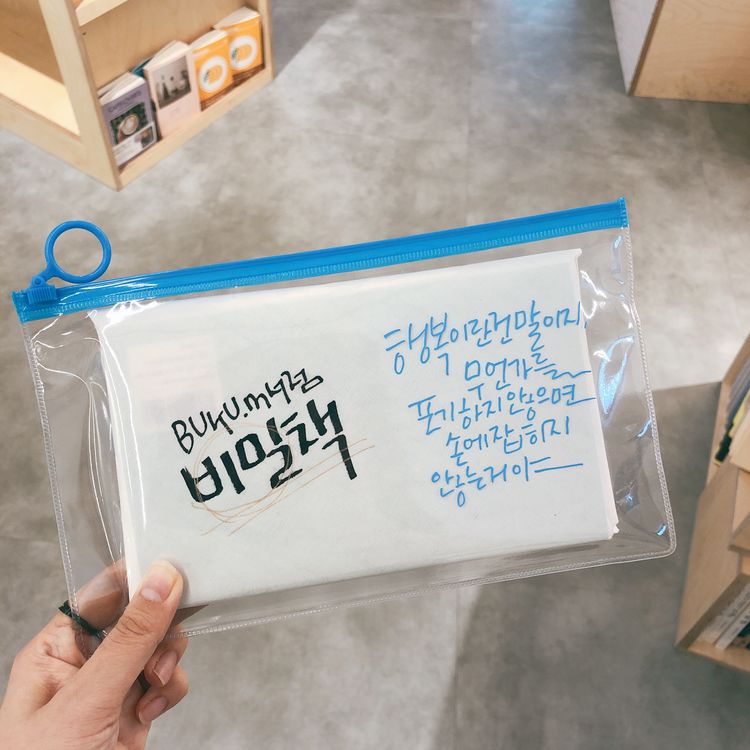 BUKU.m서점
비밀책
행복이란건말이지,
무언가를
포기하지않으면
손에잡히지
않는거야